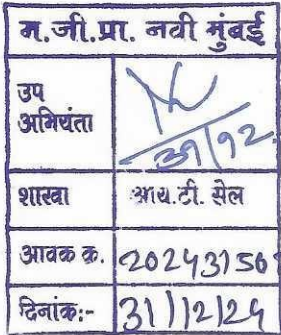 म.जी.प्रा. नवी मुंबई
उप
अभियंता
31/12
शाखा आय.टी. सेल
आवक क्र. 202431501
दिनांक:- 31/12/24